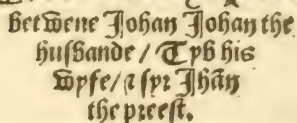 betwene Johan Johan the
husbande / Tyb his
wyfe / ⁊ syr Jhān
the preest.